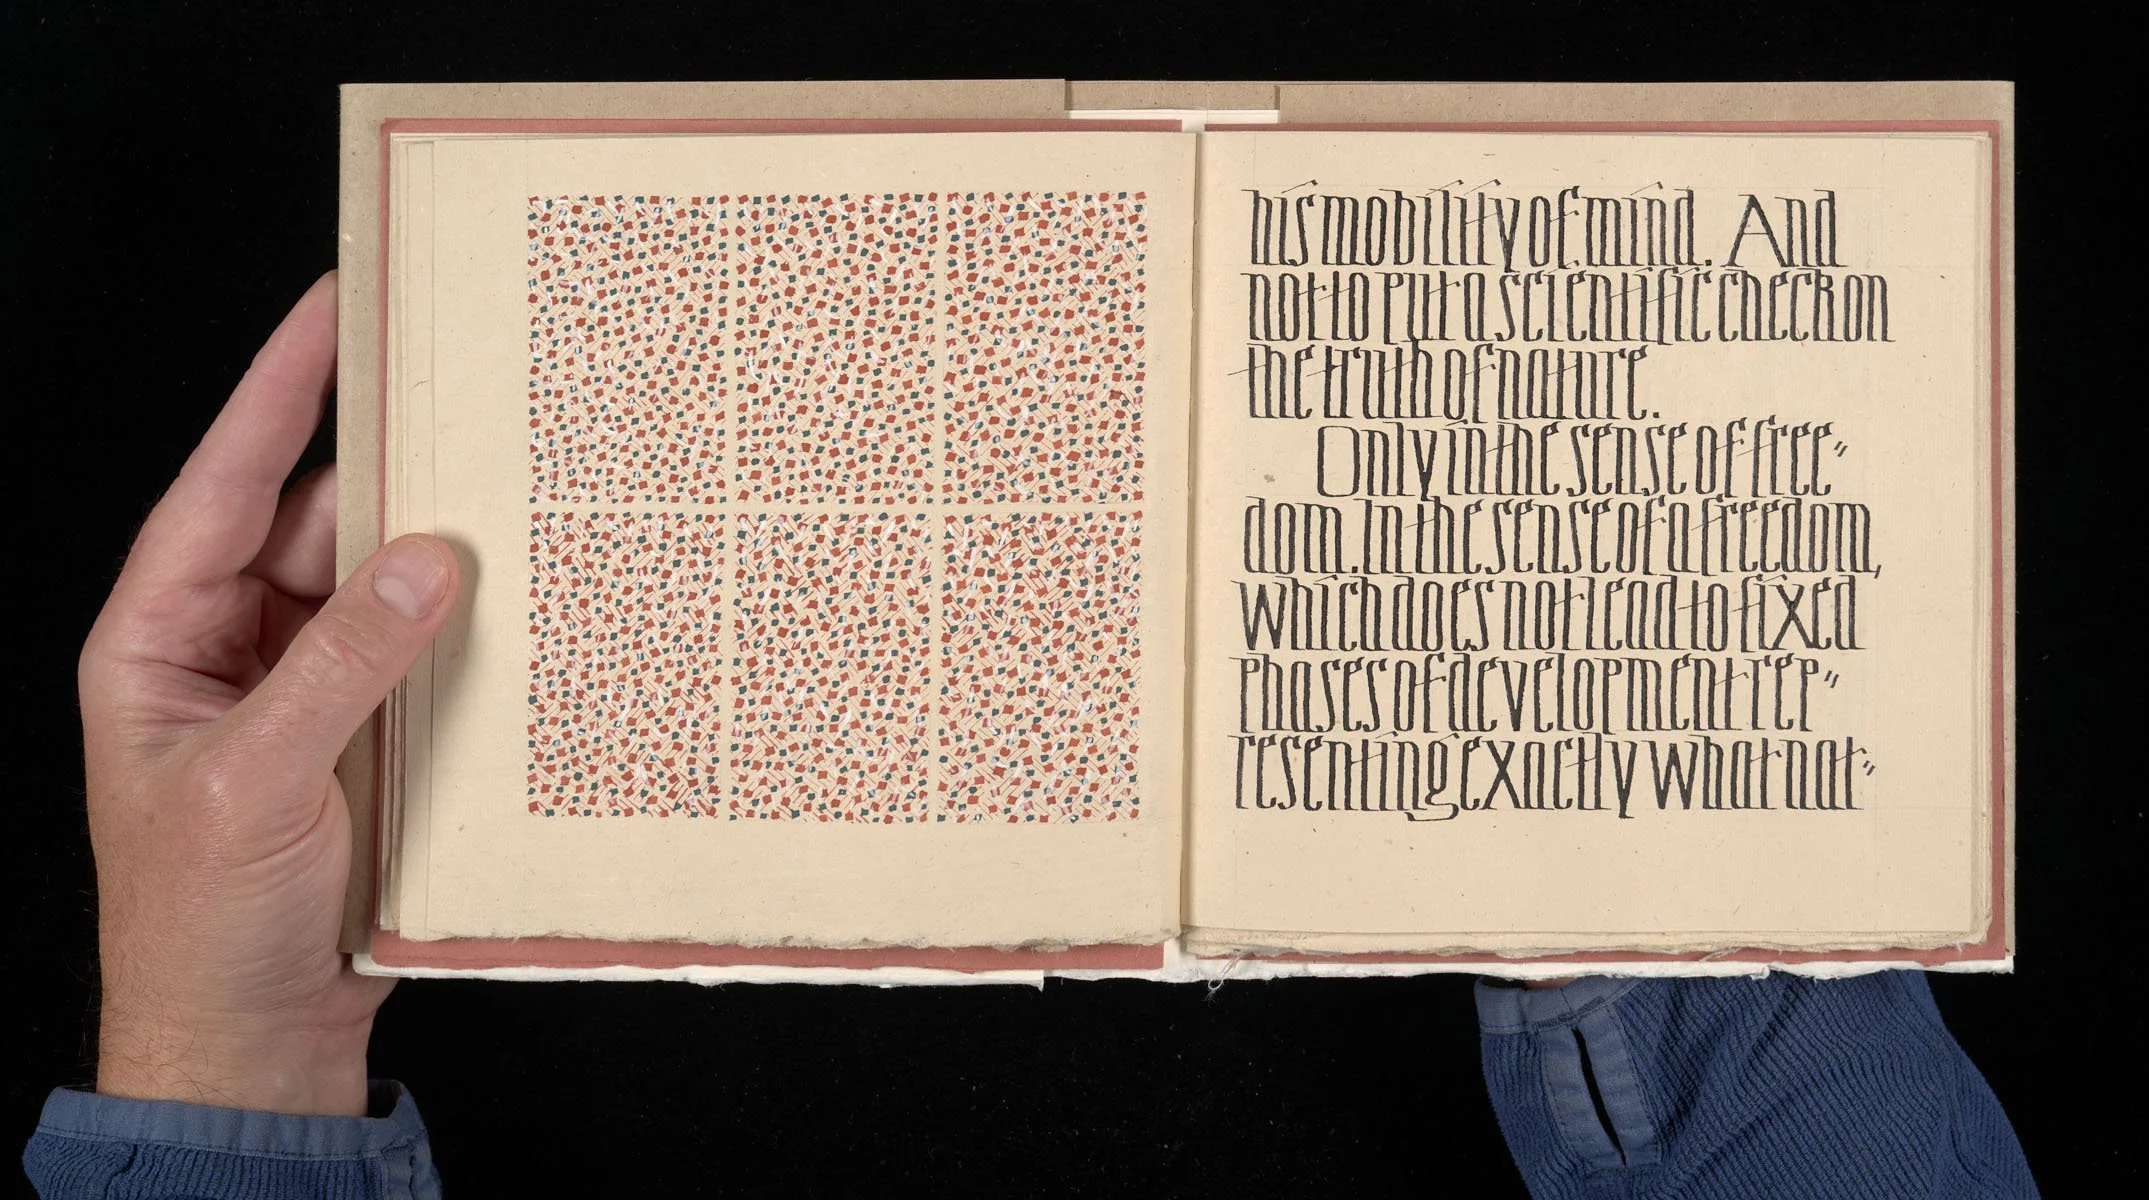 his mobility of mind. And
not to put a scientific check on
the truth of nature.
Only in the sense of free"
dom. In the sense of a freedom,
which does not lead to fixed
phases of development rep"
resenting exactly what nat"